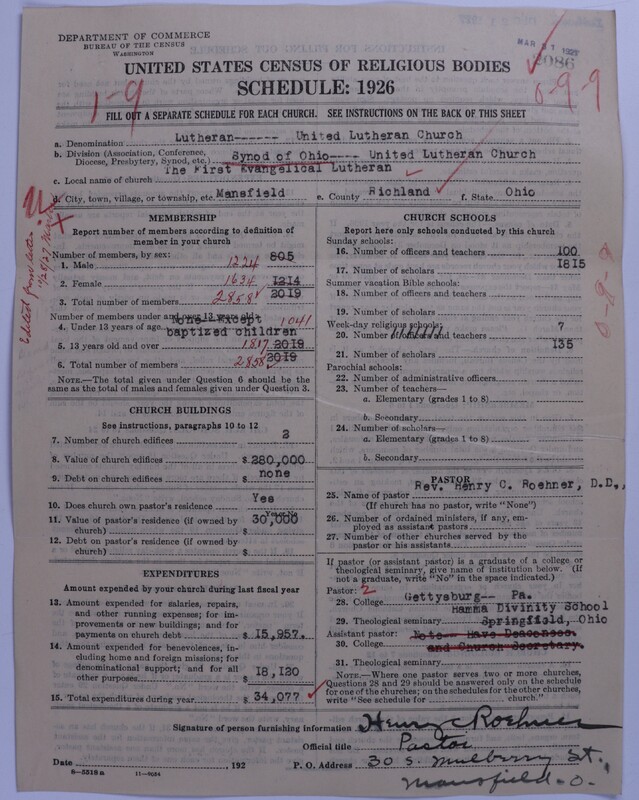 DEPARTMENT OF COMMERCE
BUREAU OF THE CENSUS
WASHINGTON
MAR 1927
2086
UNITED STATES CENSUS OF RELIGIOUS BODIES
SCHEDULE: 1926
1-9
0-9-9
FILL OUT A SEPARATE SCHEDULE FOR EACH CHURCH. SEE INSTRUCTIONS ON THE BACK OF THIS SHEET
a. Denomination Lutheran------ United Lutheran Church
b. Division (Association, Conference, Diocese, Presbytery, Synod, etc.) Synod of Ohio---- United Lutheran Church
c. Local name of church The First Evangelical Lutheran
d. City, town, village, or township, etc. Mansfield e. County Richland f. State Ohio
Edited from letter
MEMBERSHIP
Report number of members according to definition of
member in your church
Number of members, by sex:
1. Male 1224 805
2. Female 1634 1214
3. Total number of members 2858 2019
Number of members under and over 13 years old:
4. Under 13 years of age none- Except baptized children 1041
5. 13 years old and over 1817 2019
6. Total number of members 2858 2019
NOTE.—The total given under Question 6 should be the
same as the total of males and females given under Question 3.
CHURCH BUILDINGS
See instructions, paragraphs 10 to 12
7. Number of church edifices 2
8. Value of church edifices $ 280,000
9. Debt on church edifices $ none
10. Does church own pastor's residence Yes
Yes or No
11. Value of pastor's residence (if owned by
church) $ 30,000
12. Debt on pastor's residence (if owned by
church) $
EXPENDITURES
Amount expended by your church during last fiscal year
13. Amount expended for salaries, repairs,
and other running expenses; for im-
provements or new buildings; and for
payments on church debt $ 15,957.
14. Amount expended for benevolences, in-
cluding home and foreign missions; for
denominational support; and for all
other purposes $ 18,120
15. Total expenditures during year $ 34,077
CHURCH SCHOOLS
Report here only schools conducted by this church
Sunday schools:
16. Number of officers and teachers 100
17. Number of scholars 1815
Summer vacation Bible schools:
18. Number of officers and teachers
19. Number of scholars
Week-day religious schools:
20. Number of officers and teachers 7
21. Number of scholars 135
Parochial schools:
22. Number of administrative officers
23. Number of teachers—
a. Elementary (grades 1 to 8)
b. Secondary
24. Number of scholars—
a. Elementary (grades 1 to 8)
b. Secondary
0-9-8
PASTOR
25. Name of pastor Rev. Henry C. Roehner, D.D.,
(If church has no pastor, write "None")
26. Number of ordained ministers, if any, em-
ployed as assistant pastors
27. Number of other churches served by the
pastor or his assistants
If pastor (or assistant pastor) is a graduate of a college or
theological seminary, give name of institution below. (If
not a graduate, write "No" in the space indicated.)
Pastor: 2
28. College Gettysburg-- Pa.
29. Theological seminary Hamma Divinity School Springfield, Ohio
Assistant pastor: Note-- Have Deaconess
30. College and Church Secretary.
31. Theological seminary
NOTE.—Where one pastor serves two or more churches,
Questions 28 and 29 should be answered only on the schedule
for one of the churches; on the schedules for the other churches,
write "See schedule for church."
Signature of person furnishing information Henry C Roehner
Official title Pastor
Date , 192 P. O. Address 30 S. Mulberry St.,
Mansfield. O.
8-5518a 11-9034